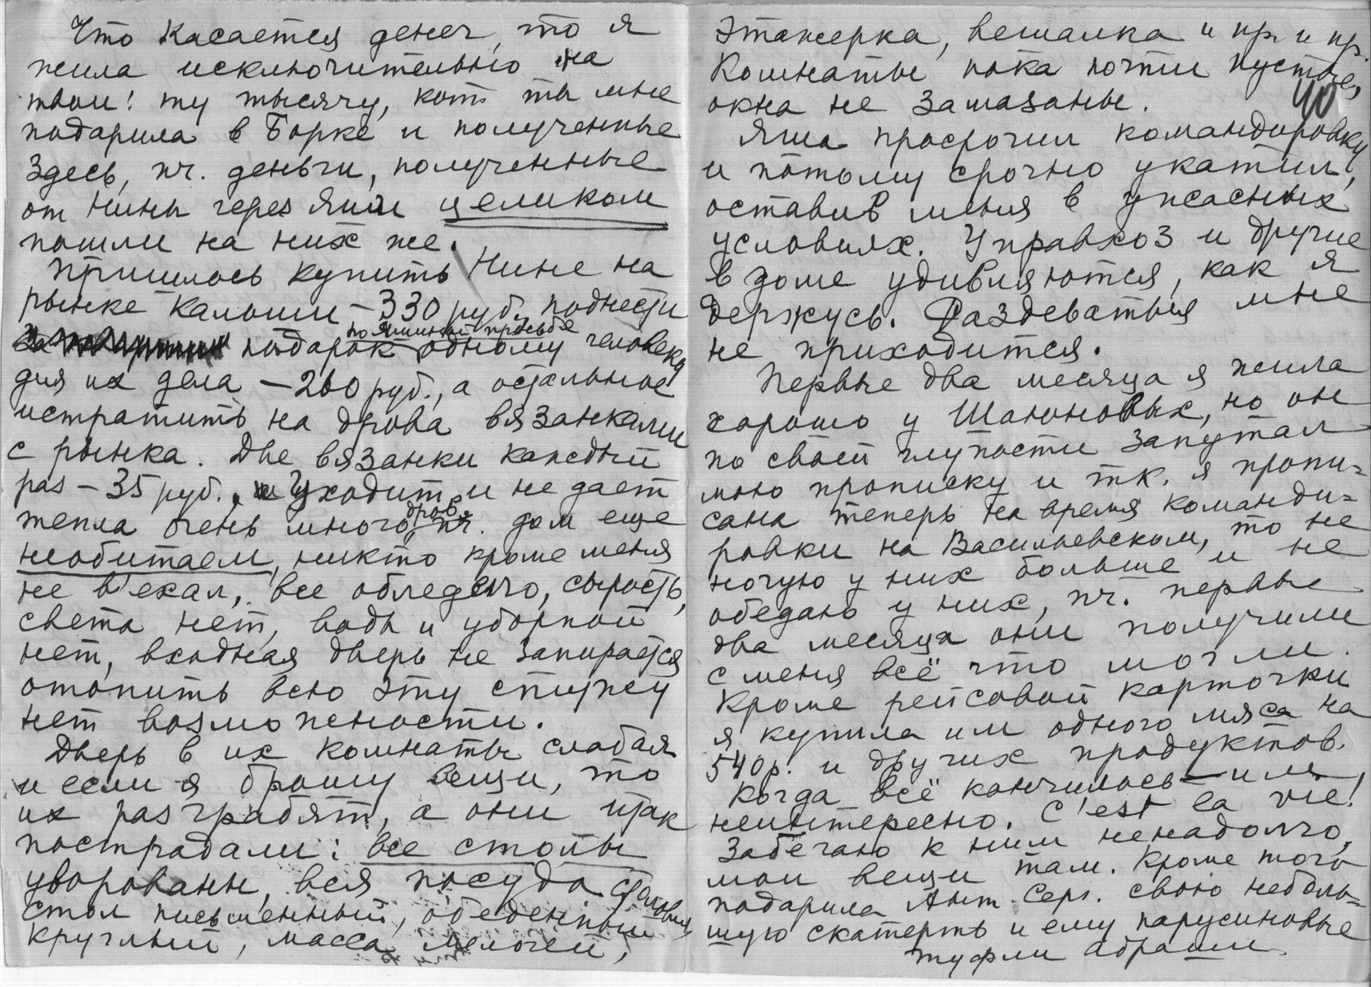 Что касается денег, то я
жила исключительно на
твои: ту тысячу, кот. ты мне
подарила в Борке и полученные
здесь, пч. деньги, полученные
от Нины через Яшу целиком
пошли на них же.
Пришлось купить Нине на
рынке калоши – 330 руб., поднести
по яшиной просьбе
подарок одному человеку
для их дела – 200 руб., а остальное
истратить на дрова вязанками
с рынка. Две вязанки каждый
раз – 35 руб. Уходит и не дает
дров
тепла очень много, пч. дом еще
необитаем, никто кроме меня
не въехал, все обледенело, сырость,
света нет, воды и уборной
нет, входная дверь не запирается
отопить всю эту стужу
нет возможности.
Дверь в их комнаты слабая
и если я брошу вещи, то
их разграбят, а они и так
пострадали: все столы
уворованы, вся посуда столовая,
стол письменный, обеденный
круглый, масса мелочей,
этажерка, вешалка и пр. и пр.
Комнаты пока почти пустые,
40
окна не замазаны.
Яша просрочил командировку
и потому срочно укатил,
оставив меня в ужасных
условиях. Управхоз и другие
в доме удивляются, как я
держусь. Раздеваться мне
не приходится.
Первые два месяца я жила
хорошо у Шапоновых, но он
по своей глупости запутал
мою прописку и т.к. я пропи=
сана теперь на время команди=
ровки на Васильевском, то не
ночую у них больше и не
обедаю у них, пч. первые
два месяца они получили
с меня всё что могли.
Кроме рейсовой карточки
я купила им одного мяса на
540р. и других продуктов.
Когда всё кончилось – им
неинтересно. C'est la vie!
Забегаю к ним ненадолго,
мои вещи там. Кроме того
подарила Ант. Серг. свою неболь=
шую скатерть и ему парусиновые
туфли Абраши.